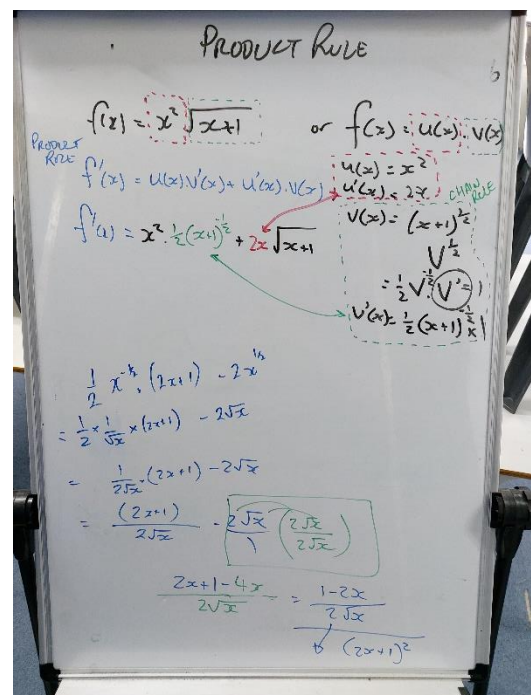 PRODUCT RULE
6
f(x) = x² √(x+1) or f(x) = u(x) . v(x)
PRODUCT RULE
f'(x) = u(x)v'(x) + u'(x).v(x)
f'(x) = x² . ½(x+1)^-½ + 2x √(x+1)
u(x) = x²
u'(x) = 2x
CHAIN RULE
v(x) = (x+1)^½
V^½
= ½ V^-½ . V' = 1
v'(x) = ½ (x+1)^-½ x 1
½ x^-½ . (2x+1) - 2x^½
= ½ × 1/√x × (2x+1) - 2√x
= 1/2√x . (2x+1) - 2√x
= (2x+1)/2√x - 2√x/1 (2√x/2√x)
2x+1-4x/2√x = 1-2x/2√x
(2x+1)²